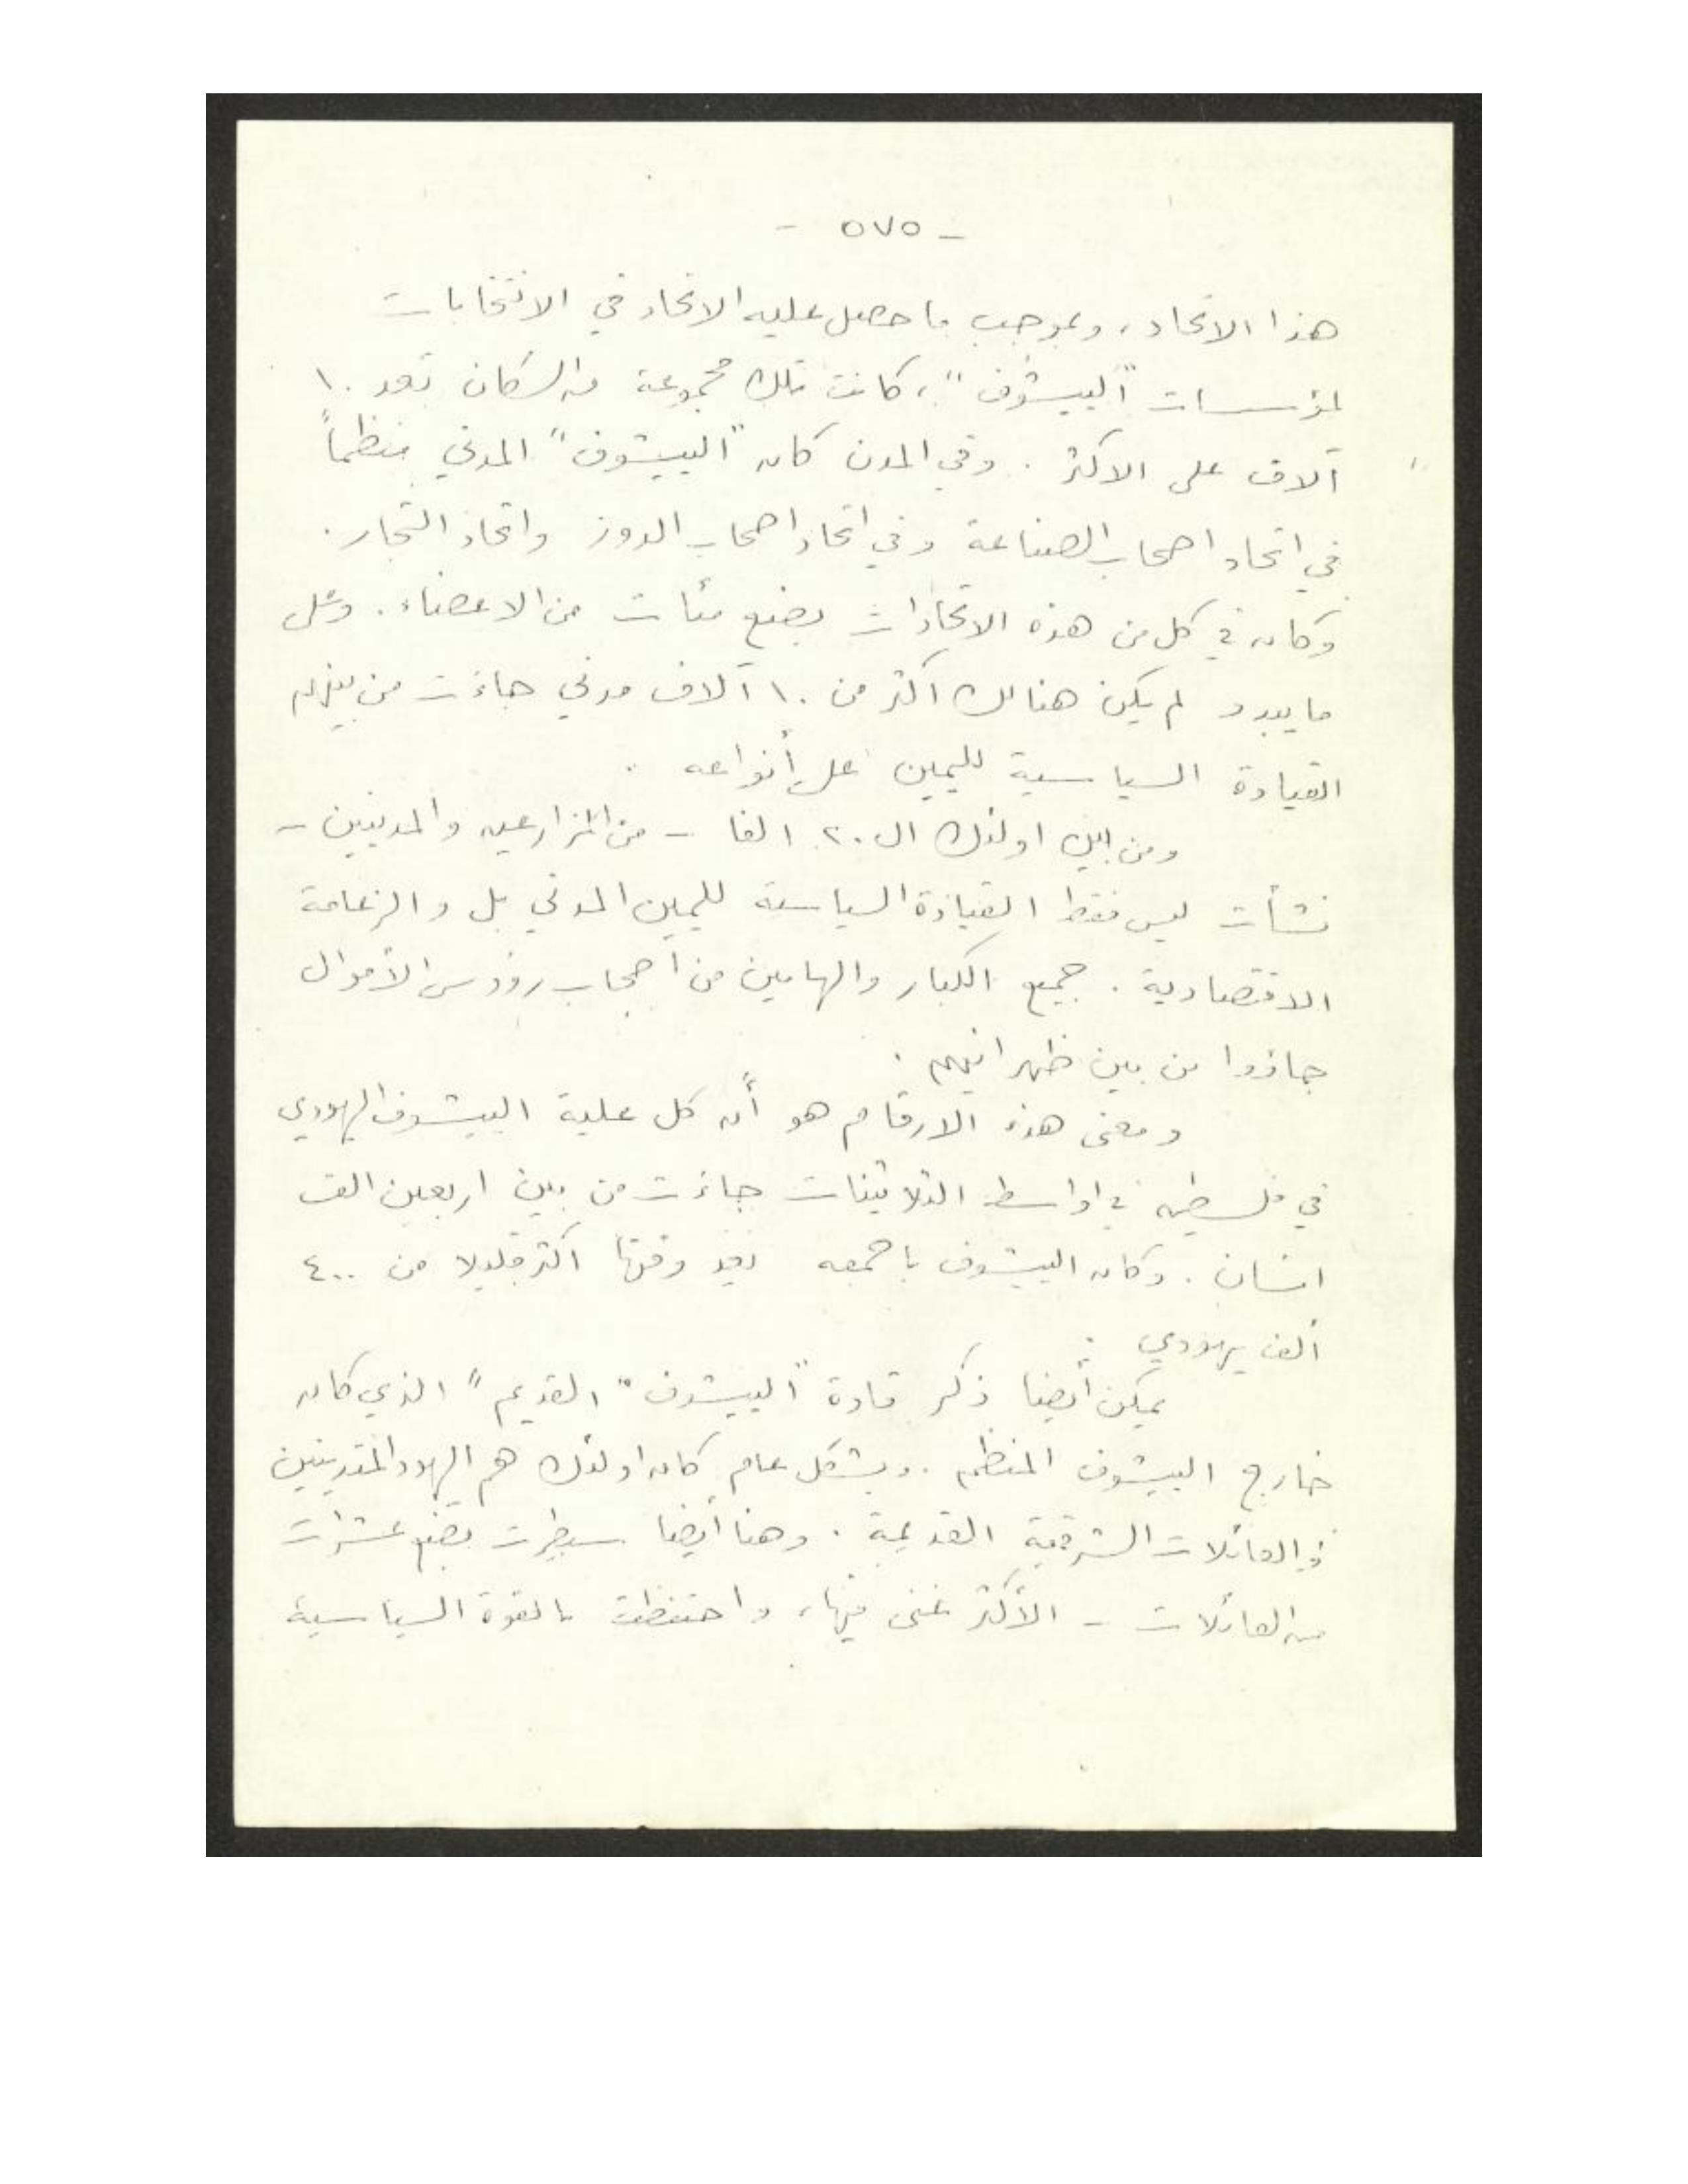 - ٥٧٥ -
هذا الاتحاد، وبموجب ما حصل عليه الاتحاد في الانتخابات
لمؤسسات "الييشوف"، كانت تلك مجموعة من السكان تعد ١٠
آلاف على الاكثر . وفي المدن كان "الييشوف" المدني منظماً
في اتحاد اصحاب الصناعة وفي اتحاد اصحاب الدور واتحاد التجار .
وكان في كل من هذه الاتحادات بضع مئات من الاعضاء . وعلى
ما يبدو لم يكن هنالك اكثر من ١٠ آلاف مدني جاءت من بينهم
القيادة السياسية لليمين على أنواعه .
ومن بين اولئك ال ٢٠ الفا - من المزارعين والمدنيين -
نشأت ليس فقط القيادة السياسية لليمين المدني بل والزعامة
الاقتصادية . جميع الكبار والهامين من أصحاب رؤوس الأموال
جاؤوا من بين ظهرانيهم .
ومعنى هذه الارقام هو أن كل علية الييشوف اليهودي
في فلسطين في اواسط الثلاثينات جاءت من بين اربعين الف
انسان . وكان الييشوف باجمعه يعد وقتها اكثر قليلا من ٤٠٠
ألف يهودي .
يمكن أيضا ذكر قادة "الييشوف" القديم" الذي كان
خارج الييشوف المنظم . وبشكل عام كان اولئك هم اليهود المتدينين
ذو العائلات الشرقية القديمة . وهنا أيضا سيطرت بضع عشرات
من العائلات - الأكثر غنى فيها، واحتفظت بالقوة السياسية